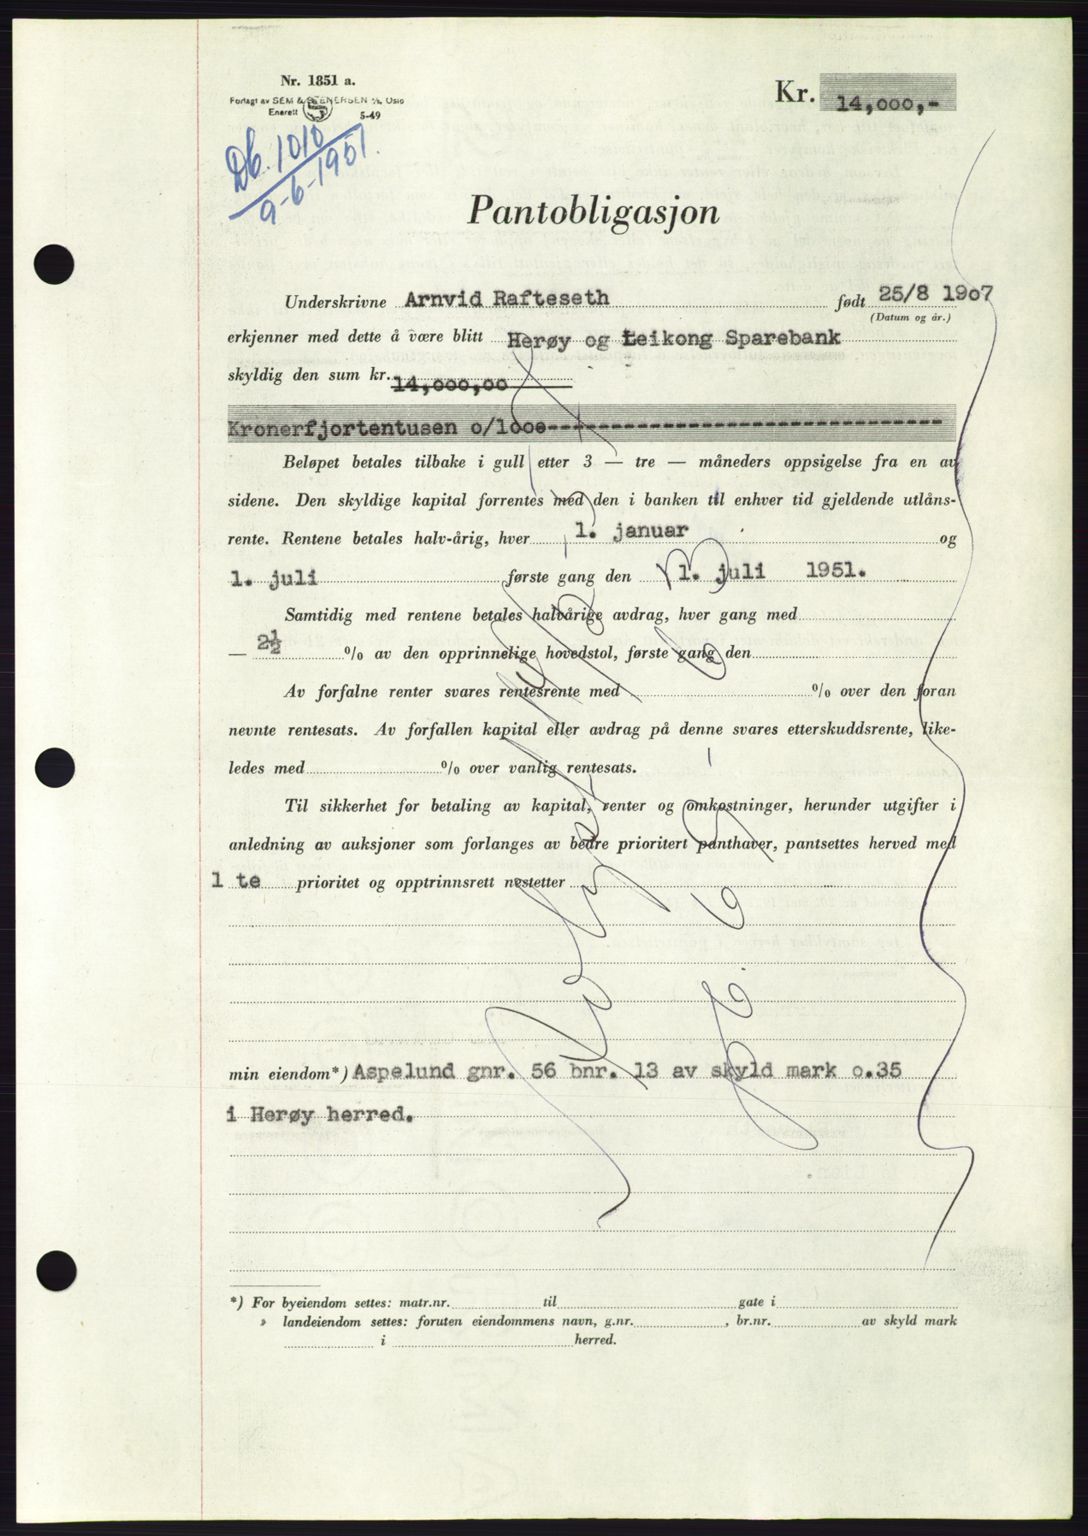 Nr. 1851 a.
Forlagt av SEM & STENERSEN A/S, Oslo
Enerett
5-49
Kr. 14,000,-
Db. 1010
9-6-1951.
Pantobligasjon
Underskrivne Arnvid Rafteseth født 25/8 1907
(Datum og år.)
erkjenner med dette å være blitt Herøy og Leikong Sparebank
skyldig den sum kr. 14,000,00
Kronerfjortentusen o/100e--------------------------------
Beløpet betales tilbake i gull etter 3 — tre — måneders oppsigelse fra en av
sidene. Den skyldige kapital forrentes med den i banken til enhver tid gjeldende utlåns-
rente. Rentene betales halv-årig, hver 1. januar og
1. juli første gang den 1. juli 1951.
Samtidig med rentene betales halvårige avdrag, hver gang med
— 2½ % av den opprinnelige hovedstol, første gang den
Av forfalne renter svares rentesrente med % over den foran
nevnte rentesats. Av forfallen kapital eller avdrag på denne svares etterskuddsrente, like-
ledes med % over vanlig rentesats.
Til sikkerhet for betaling av kapital, renter og omkostninger, herunder utgifter i
anledning av auksjoner som forlanges av bedre prioritert panthaver, pantsettes herved med
1 te prioritet og opptrinnsrett nestetter
min eiendom*) Aspelund gnr. 56 bnr. 13 av skyld mark o.35
i Herøy herred.
*) For byeiendom settes: matr.nr. til gate i
» landeiendom settes: foruten eiendommens navn, g.nr. , br.nr. av skyld mark
i herred.